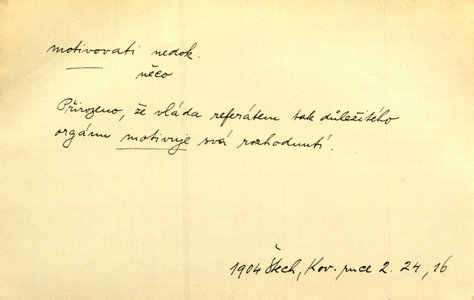 motivovati nedok.
něco
Přirozeno, že vláda referátem tak důležitého
orgánu motivuje svá rozhodnutí.
1904 Čech, Kov. ruce 2. 24, 16